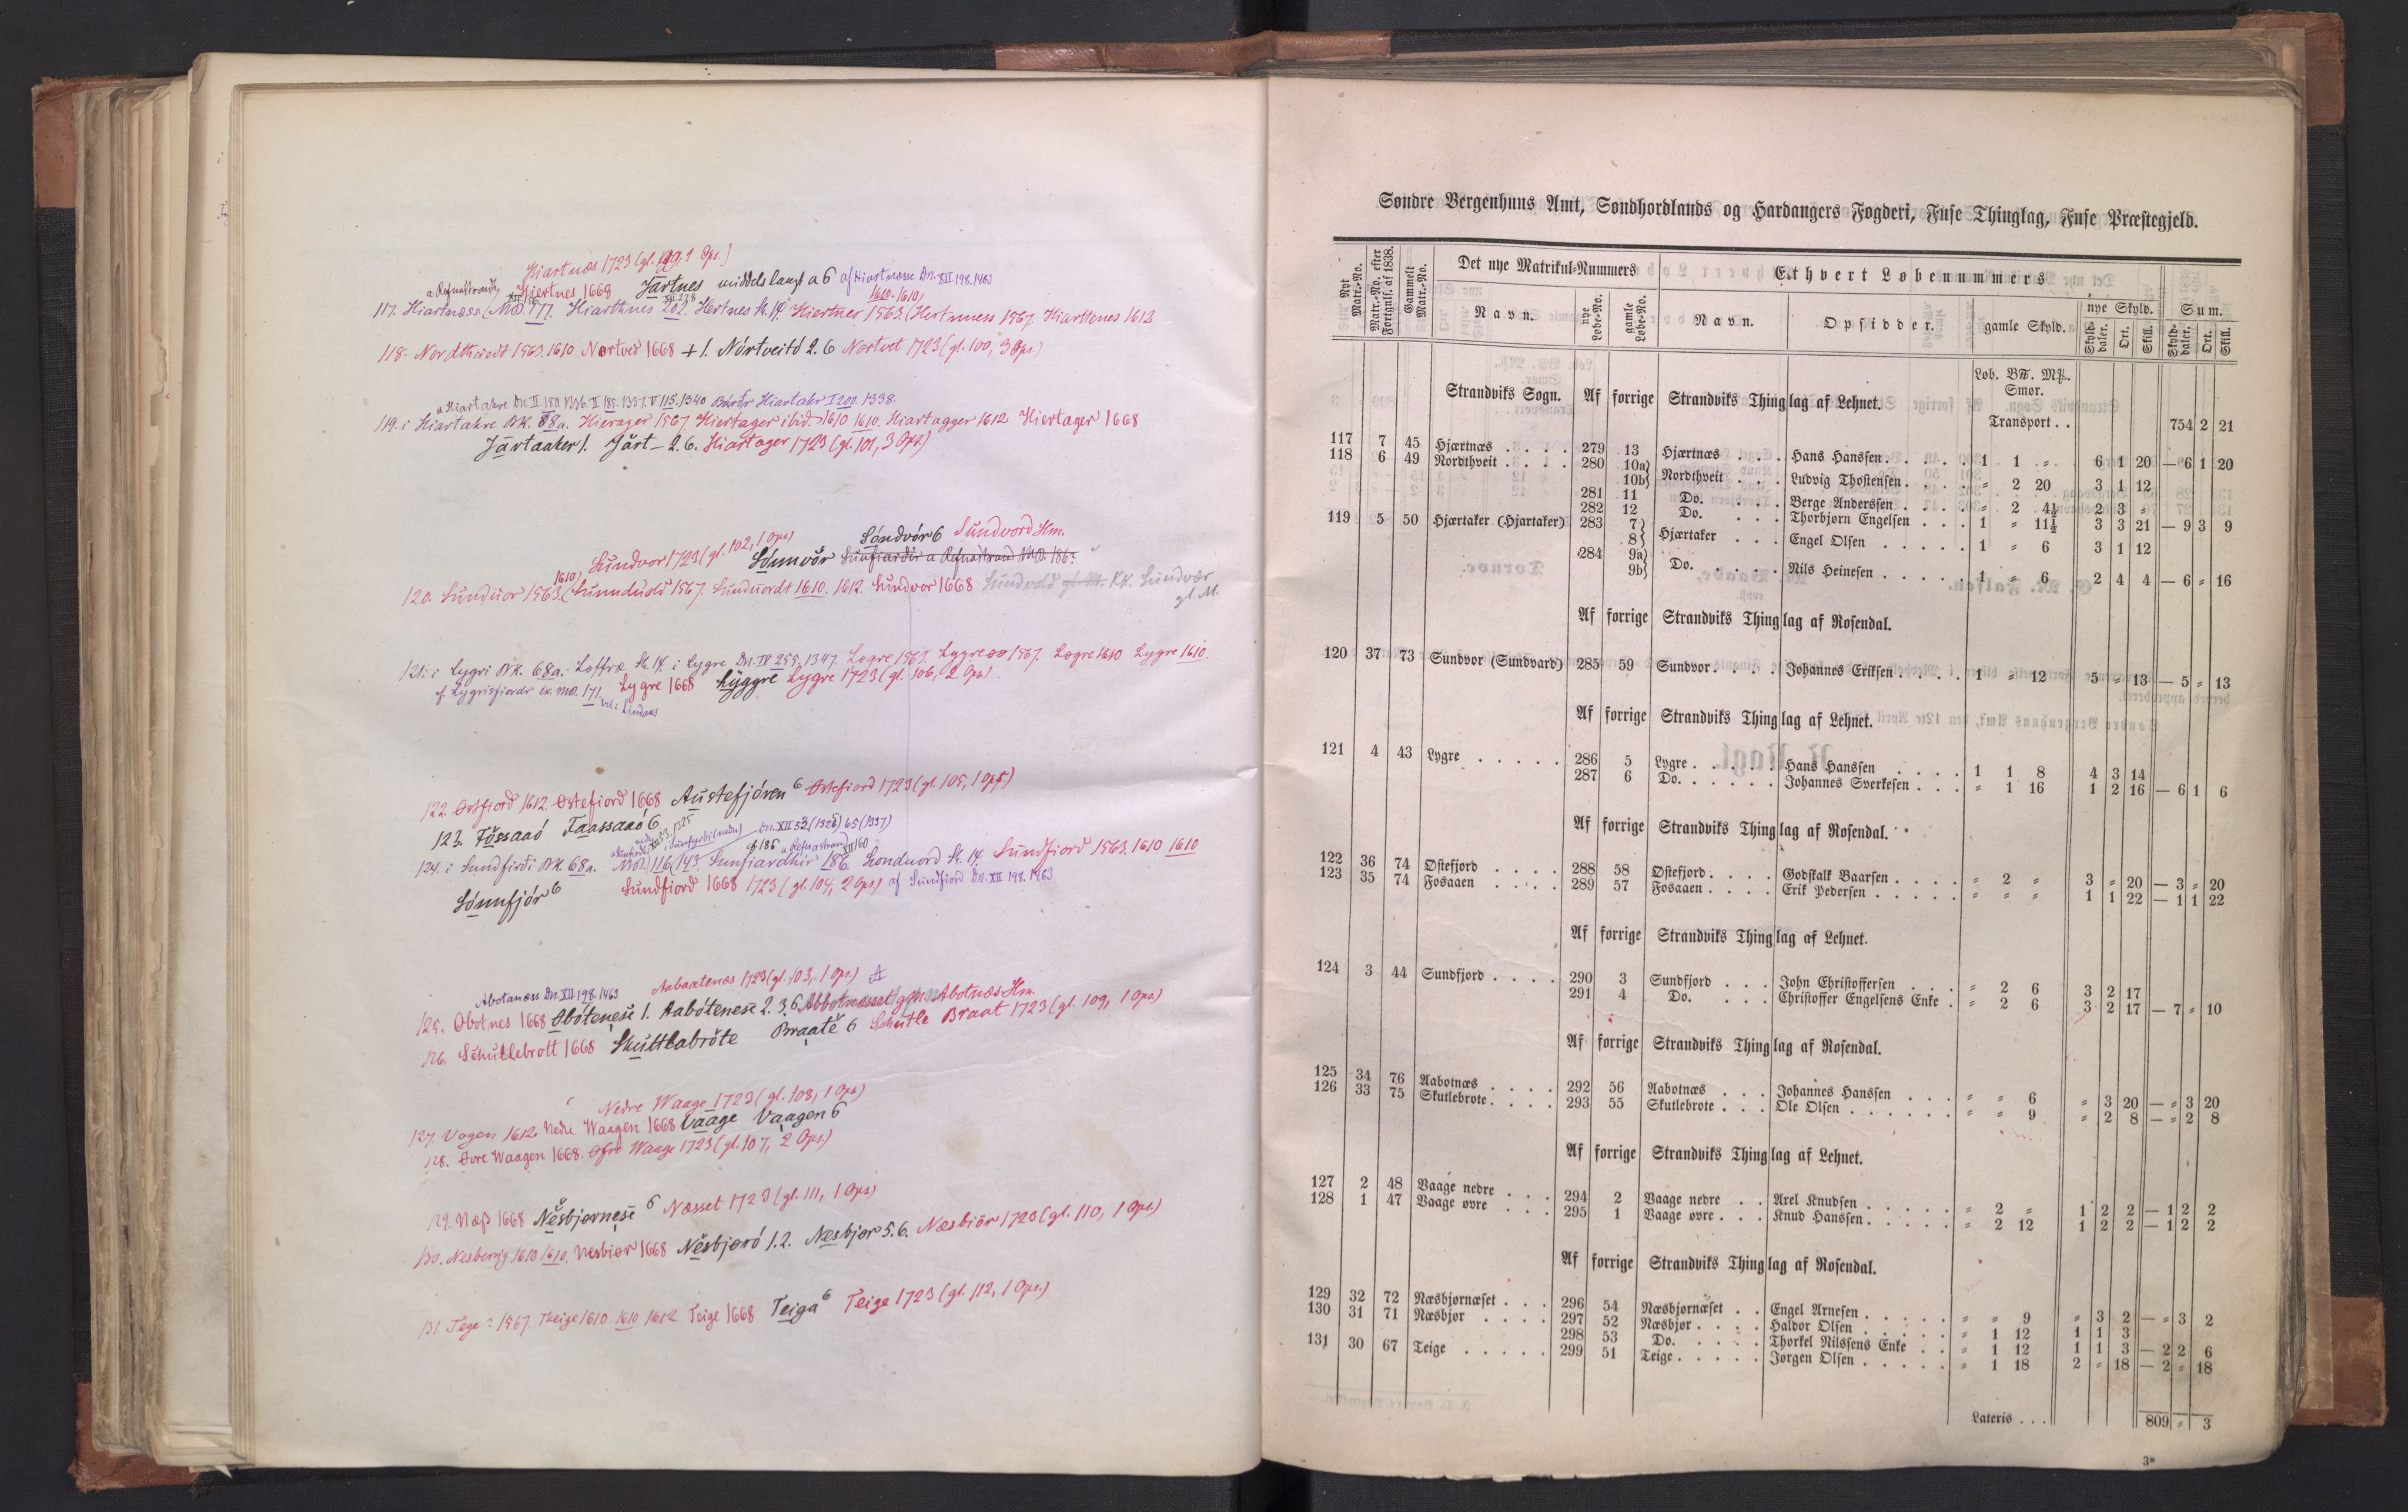 Hiartnæs 1723 (gl. 99, 1 Ops.)
a Refnastrand Hiertnes 1668 Järtnes middels langt a 6 af Hiartnæsse Dn. XII 198. 1463
117. Hiartnæss (MO. 177. Hiarthnes 202. Hertnes St. 14. Hiertnes 1563. (Hertnness 1567. Hiarttenes 1612
1610. 1610)
118. Nordthuedt 1563. 1610 Nortved 1668 + 1. Nórtveitó 2. 6 Nortvet 1723 (gl. 100, 3 Ops.)
a Hiartakre Dn. II 180. 1336. II 185. 1337. V 115. 1340 Hiartakr I 200. 1338.
119. i Hiartakre BK. 68a. Hierager 1567 Hiertager ibid. 1610 1610. Hiartagger 1612 Hiertager 1668
Järtaaker 1. Jårt- 2. 6. Hiartager 1723 (gl. 101, 3 Ops.)
Sóndvór 6 Sundvord Hm.
Sundvor 1723 (gl. 102, 1 Ops) Sónnvör Sunfiardir a Refnastrand MO. 186?
120. Sunduor 1563. (1610) Sundeuold 1567. Sunduordt 1610. 1612. Sundvor 1668 Sundvold KK. Sundvær
gl. M.
121. i Lygri BK. 68a. Loffræ St. 14. i Lygre Dn. IV 255. 1347.Løgre 1563. Lygre 1567. Løgre 1610 Lygre 1610.
cf. Lygrisfiordr MO. 171. vel i Lindaas Lygre 1668 Lýggre Lygre 1723 (gl. 106, 2 Ops)
122. Østfiord 1612. Østefiord 1668 Austefjóren 6 Østefiord 1723 (gl. 105, 1 Ops.)
123. Fössaaó Faassaaó 6
Dn. XII 53 (1325) 65 (1337)
124. i Sundfirdi BK. 68a. MO. 116. 143. Sunfiardhir 186. Sonduord St. 14. Sundfiord 1563. 1610 1610
cf 186 a Refnastrand
Sónnfjór 6 Sundfiord 1668 1723 (gl. 104, 2 Ops) af Sundfiord Dn. XII 198. 1463
Aabaatenæs 1723 (gl. 103, 1 Ops.)
Abotanæss Dn. XII 198. 1463
125. Obotnes 1668 Obóteneșe 1. Aabótenese 2. 3. 6. Abotnæs Hm.
126. Schutlebrott 1668 Skuttlabröte Braatě 6 Schutle Braat 1723 (gl. 109, 1 Ops)
Nedre Waage 1723 (gl. 108, 1 Ops)
127. Vogen 1612. Nedre Waagen 1668 Vaage Vaagen 6
128. Øvre Waagen 1668. Øfre Waage 1723 (gl. 107, 2 Ops.)
129. Næss 1668 Nesbjornese 6 Næsset 1723 (gl. 111, 1 Ops)
130. Nesberrig 1610 1610. Nesbiør 1668 Nesbjøró 1. 2. Nesbjør 5. 6. Næsbiör 1723 (gl. 110, 1 Ops.)
131. Tege 1567. Theige 1610. 1610 1612 Teige 1668 Teiga 6 Teige 1723 (gl. 112, 1 Ops.)
Søndre Bergenhuus Amt, Søndhordlands og Hardangers Fogderi, Fuse Thinglag, Fuse Præstegjeld.
Nyt Matr.-No. Matr.-No. efter Fortgnlf. af 1838. Gammelt Matr.-No. Det nye Matrikul-Nummers Ethvert Løbenummers
Navn. nye Løbe-No. gamle Løbe-No. Navn. Opsidder. gamle Skyld. nye Skyld. Sum.
Skyld-daler. Ort. Skill. Skyld-daler. Ort. Skill.
Løb. B℔. Mꝝ. Smør.
Strandviks Sogn. Af forrige Strandviks Thinglag af Lehnet.
Transport . . 754 2 21
117 7 45 Hjærtnæs . . . . 279 13 Hjærtnæs . . . . Hans Hanssen . . . . . 1 1 = 6 1 20 — 6 1 20
118 6 49 Nordthveit . . . . 280 10a) 10b) Nordthveit . . . Ludvig Thostensen . . . . = 2 20 3 1 12
281 11 Do. . . . Berge Anderssen . . . . = 2 4½ 2 3 =
282 12 Do. . . . Thorbjørn Engelsen . . . 1 = 11½ 3 3 21 — 9 3 9
119 5 50 Hjærtaker (Hjartaker) 283 7) 8) Hjærtaker . . . Engel Olsen . . . . . 1 = 6 3 1 12
284 9a) 9b) Do. . . . . Nils Heinesen . . . . 1 = 6 2 4 4 — 6 = 16
Af forrige Strandviks Thinglag af Rosendal.
120 37 73 Sundvor (Sundvard) 285 59 Sundvor . . . . Johannes Eriksen . . . . 1 = 12 5 = 13 — 5 = 13
Af forrige Strandviks Thinglag af Lehnet.
121 4 43 Lygre . . . . . 286 5 Lygre . . . . . Hans Hanssen . . . . 1 1 8 4 3 14
287 6 Do. . . . . . Johannes Sverkesen . . . = 1 16 1 2 16 — 6 1 6
Af forrige Strandviks Thinglag af Rosendal.
122 36 74 Østefjord . . . . 288 58 Østefjord . . . . Godskalk Baarsen . . . . = 2 = 3 = 20 — 3 = 20
123 35 74 Fosaaen . . . . 289 57 Fosaaen . . . . Erik Pedersen . . . . . = = = 1 1 22 — 1 1 22
Af forrige Strandviks Thinglag af Lehnet.
124 3 44 Sundfjord . . . . 290 3 Sundfjord . . . John Christoffersen . . . = 2 6 3 2 17
291 4 Do. . . . Christoffer Engelsens Enke . = 2 6 3 2 17 — 7 = 10
Af forrige Strandviks Thinglag af Rosendal.
125 34 76 Aabotnæs . . . . 292 56 Aabotnæs . . . Johannes Hanssen . . . = = 6 = 3 20 — = 3 20
126 33 75 Skutlebrote . . . . 293 55 Skutlebrote . . . Ole Olsen . . . . . . = = 9 = 2 8 — = 2 8
Af forrige Strandviks Thinglag af Lehnet.
127 2 48 Vaage nedre . . . 294 2 Vaage nedre . . Arel Knudsen . . . . . = 2 = 1 2 2 — 1 2 2
128 1 47 Vaage øvre . . . 295 1 Vaage øvre . . . Knud Hanssen . . . . . = 2 12 1 2 2 — 1 2 2
Af forrige Strandviks Thinglag af Rosendal.
129 32 72 Næsbjørnæset . . . 296 54 Næsbjørnæset . . Engel Arnesen . . . . . = = 9 = 3 2 — = 3 2
130 31 71 Næsbjør . . . . 297 52 Næsbjør . . . . Haldor Olsen . . . . . = 1 12 1 1 3
298 53 Do. . . . . Thorkel Nilssens Enke . . = 1 12 1 1 3 — 2 2 6
131 30 67 Teige . . . . . 299 51 Teige . . . . . Jørgen Olsen . . . . . = 1 18 2 = 18 — 2 = 18
Lateris . . . 809 = 3
3*